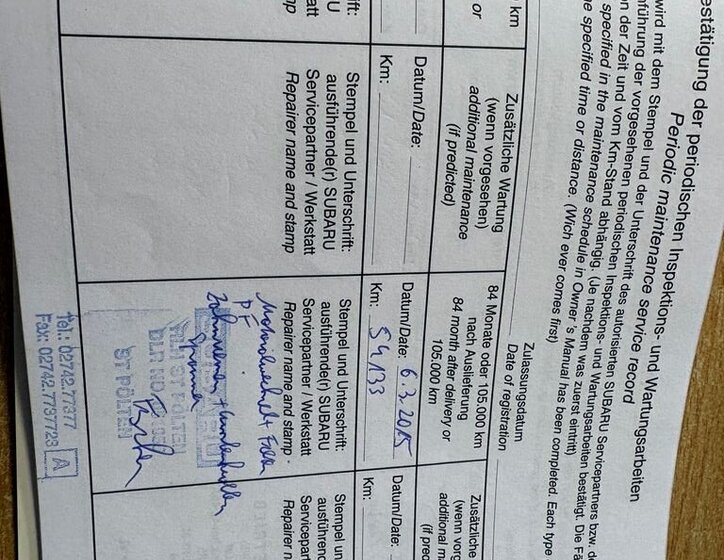 estätigung der periodischen Inspektions- und Wartungsarbeiten
Periodic maintenance service record
wird mit dem Stempel und der Unterschrift des autorisierten SUBARU Servicepartners bzw. de
führung der vorgesehenen periodischen Inspektions- und Wartungsarbeiten bestätigt. Die Fä
n der Zeit und vom Km-Stand abhängig. (Je nachdem was zuerst eintritt)
specified in the maintenance schedule in Owner's Manual has been completed. Each type
e specified time or distance. (Wich ever comes first)
Zulassungsdatum
Date of registration
km
or
ift:
U
tatt
mp
Zusätzliche Wartung
(wenn vorgesehen)
additional maintenance
(if predicted)
Datum/Date:
Km:
Stempel und Unterschrift:
ausführende(r) SUBARU
Servicepartner / Werkstatt
Repairer name and stamp
84 Monate oder 105.000 km
nach Auslieferung
84 month after delivery or
105.000 km
Datum/Date: 6.3.2015
Km: 54133
Stempel und Unterschrift:
ausführende(r) SUBARU
Servicepartner / Werkstatt
Repairer name and stamp
PF
Zahnriemen +
Spanner
ST PÖLTEN
ST PÖLTEN
Tel.: 02742.77377
Fax: 02742.7737723
A
Zusätzliche
(wenn vorg
additional m
(if predi
Datum/Date:
Km:
Stempel und
ausführend
Servicepart
Repairer n